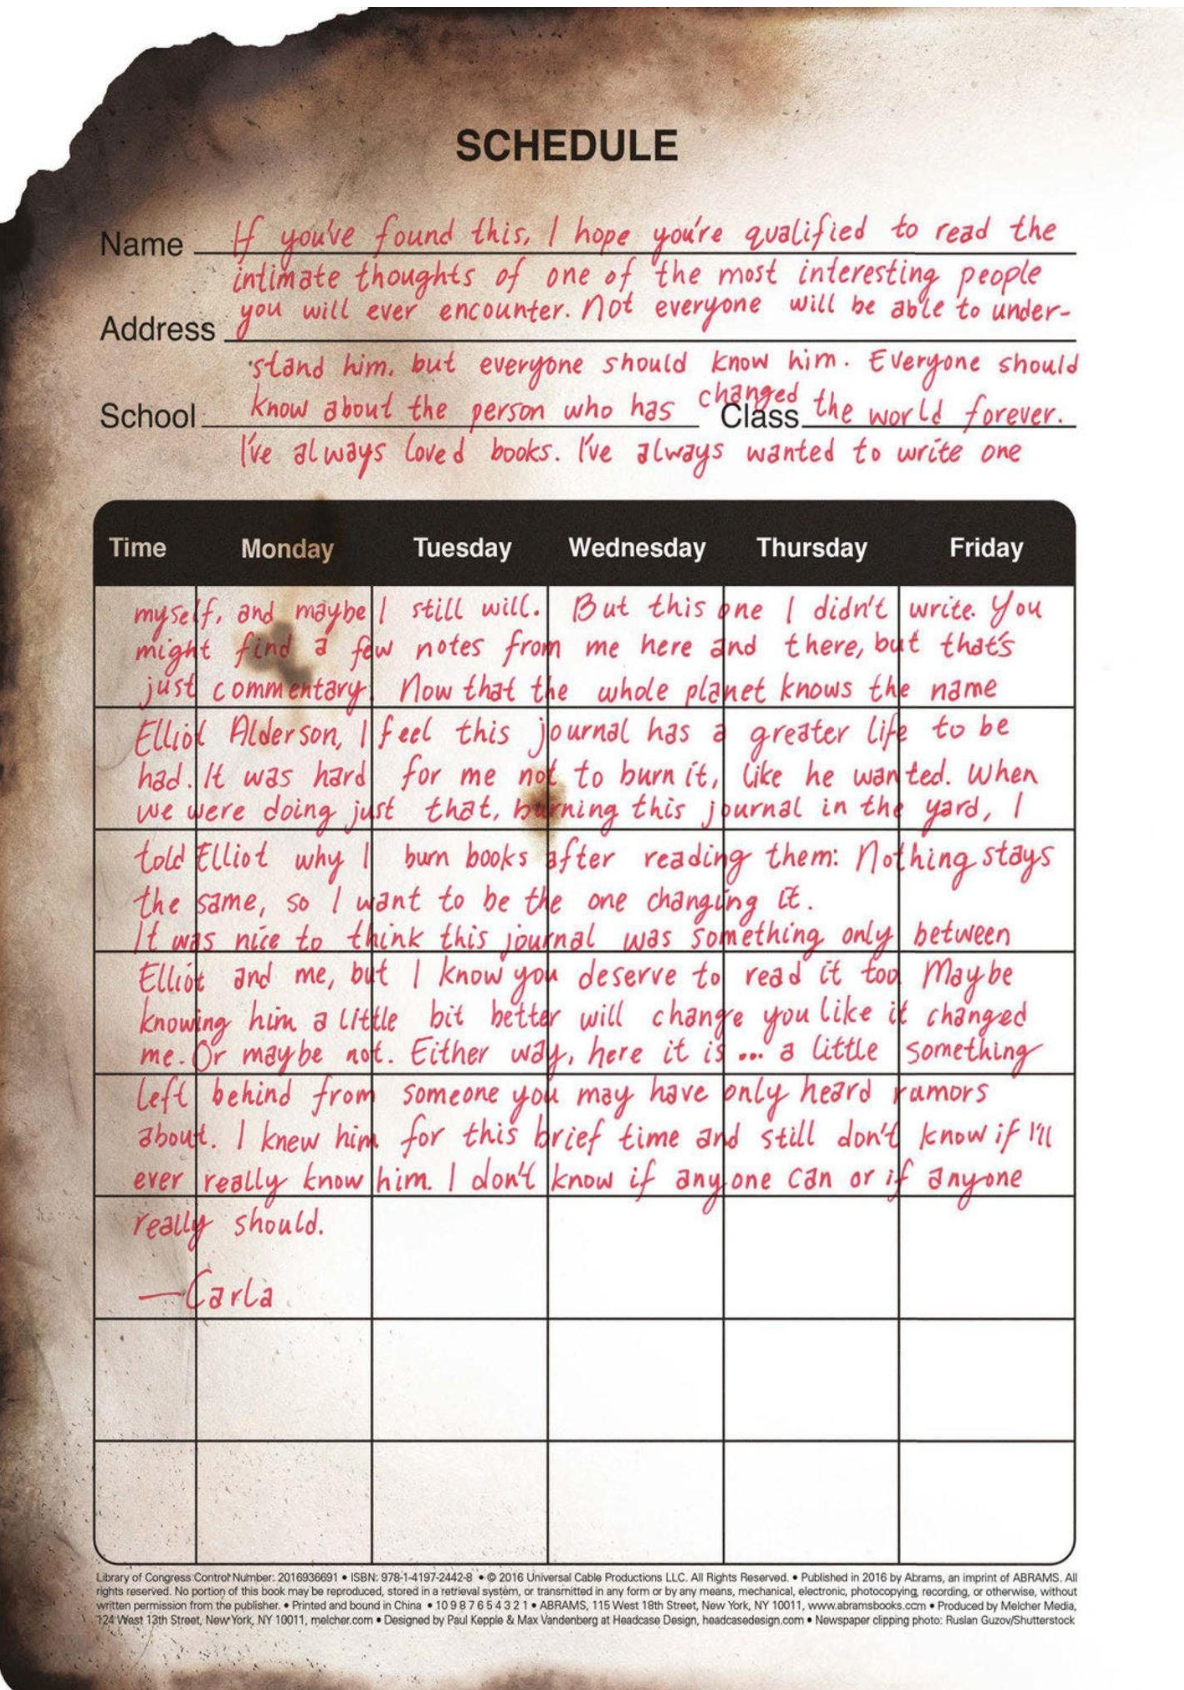 SCHEDULE
Name If you've found this, I hope you're qualified to read the
intimate thoughts of one of the most interesting people
you will ever encounter. Not everyone will be able to under-
Address
stand him, but everyone should know him. Everyone should
School know about the person who has changed Class the world forever.
I've always loved books. I've always wanted to write one
Time Monday Tuesday Wednesday Thursday Friday
myself, and maybe I still will. But this one I didn't write. You
might find a few notes from me here and there, but that's
just commentary. Now that the whole planet knows the name
Elliot Alderson, I feel this journal has a greater life to be
had. It was hard for me not to burn it, like he wanted. When
we were doing just that, burning this journal in the yard, I
told Elliot why I burn books after reading them: Nothing stays
the same, so I want to be the one changing it.
It was nice to think this journal was something only between
Elliot and me, but I know you deserve to read it too. Maybe
knowing him a little bit better will change you like it changed
me. Or maybe not. Either way, here it is ... a little something
left behind from someone you may have only heard rumors
about. I knew him for this brief time and still don't know if I'll
ever really know him. I don't know if anyone can or if anyone
really should.
—Carla
Library of Congress Control Number: 2016936691 • ISBN: 978-1-4197-2442-8 • © 2016 Universal Cable Productions LLC. All Rights Reserved. • Published in 2016 by Abrams, an imprint of ABRAMS. All
rights reserved. No portion of this book may be reproduced, stored in a retrieval system, or transmitted in any form or by any means, mechanical, electronic, photocopying, recording, or otherwise, without
written permission from the publisher. • Printed and bound in China • 10 9 8 7 6 5 4 3 2 1 • ABRAMS, 115 West 18th Street, New York, NY 10011, www.abramsbooks.com • Produced by Melcher Media,
124 West 13th Street, New York, NY 10011, melcher.com • Designed by Paul Kepple & Max Vandenberg at Headcase Design, headcasedesign.com • Newspaper clipping photo: Ruslan Guzov/Shutterstock